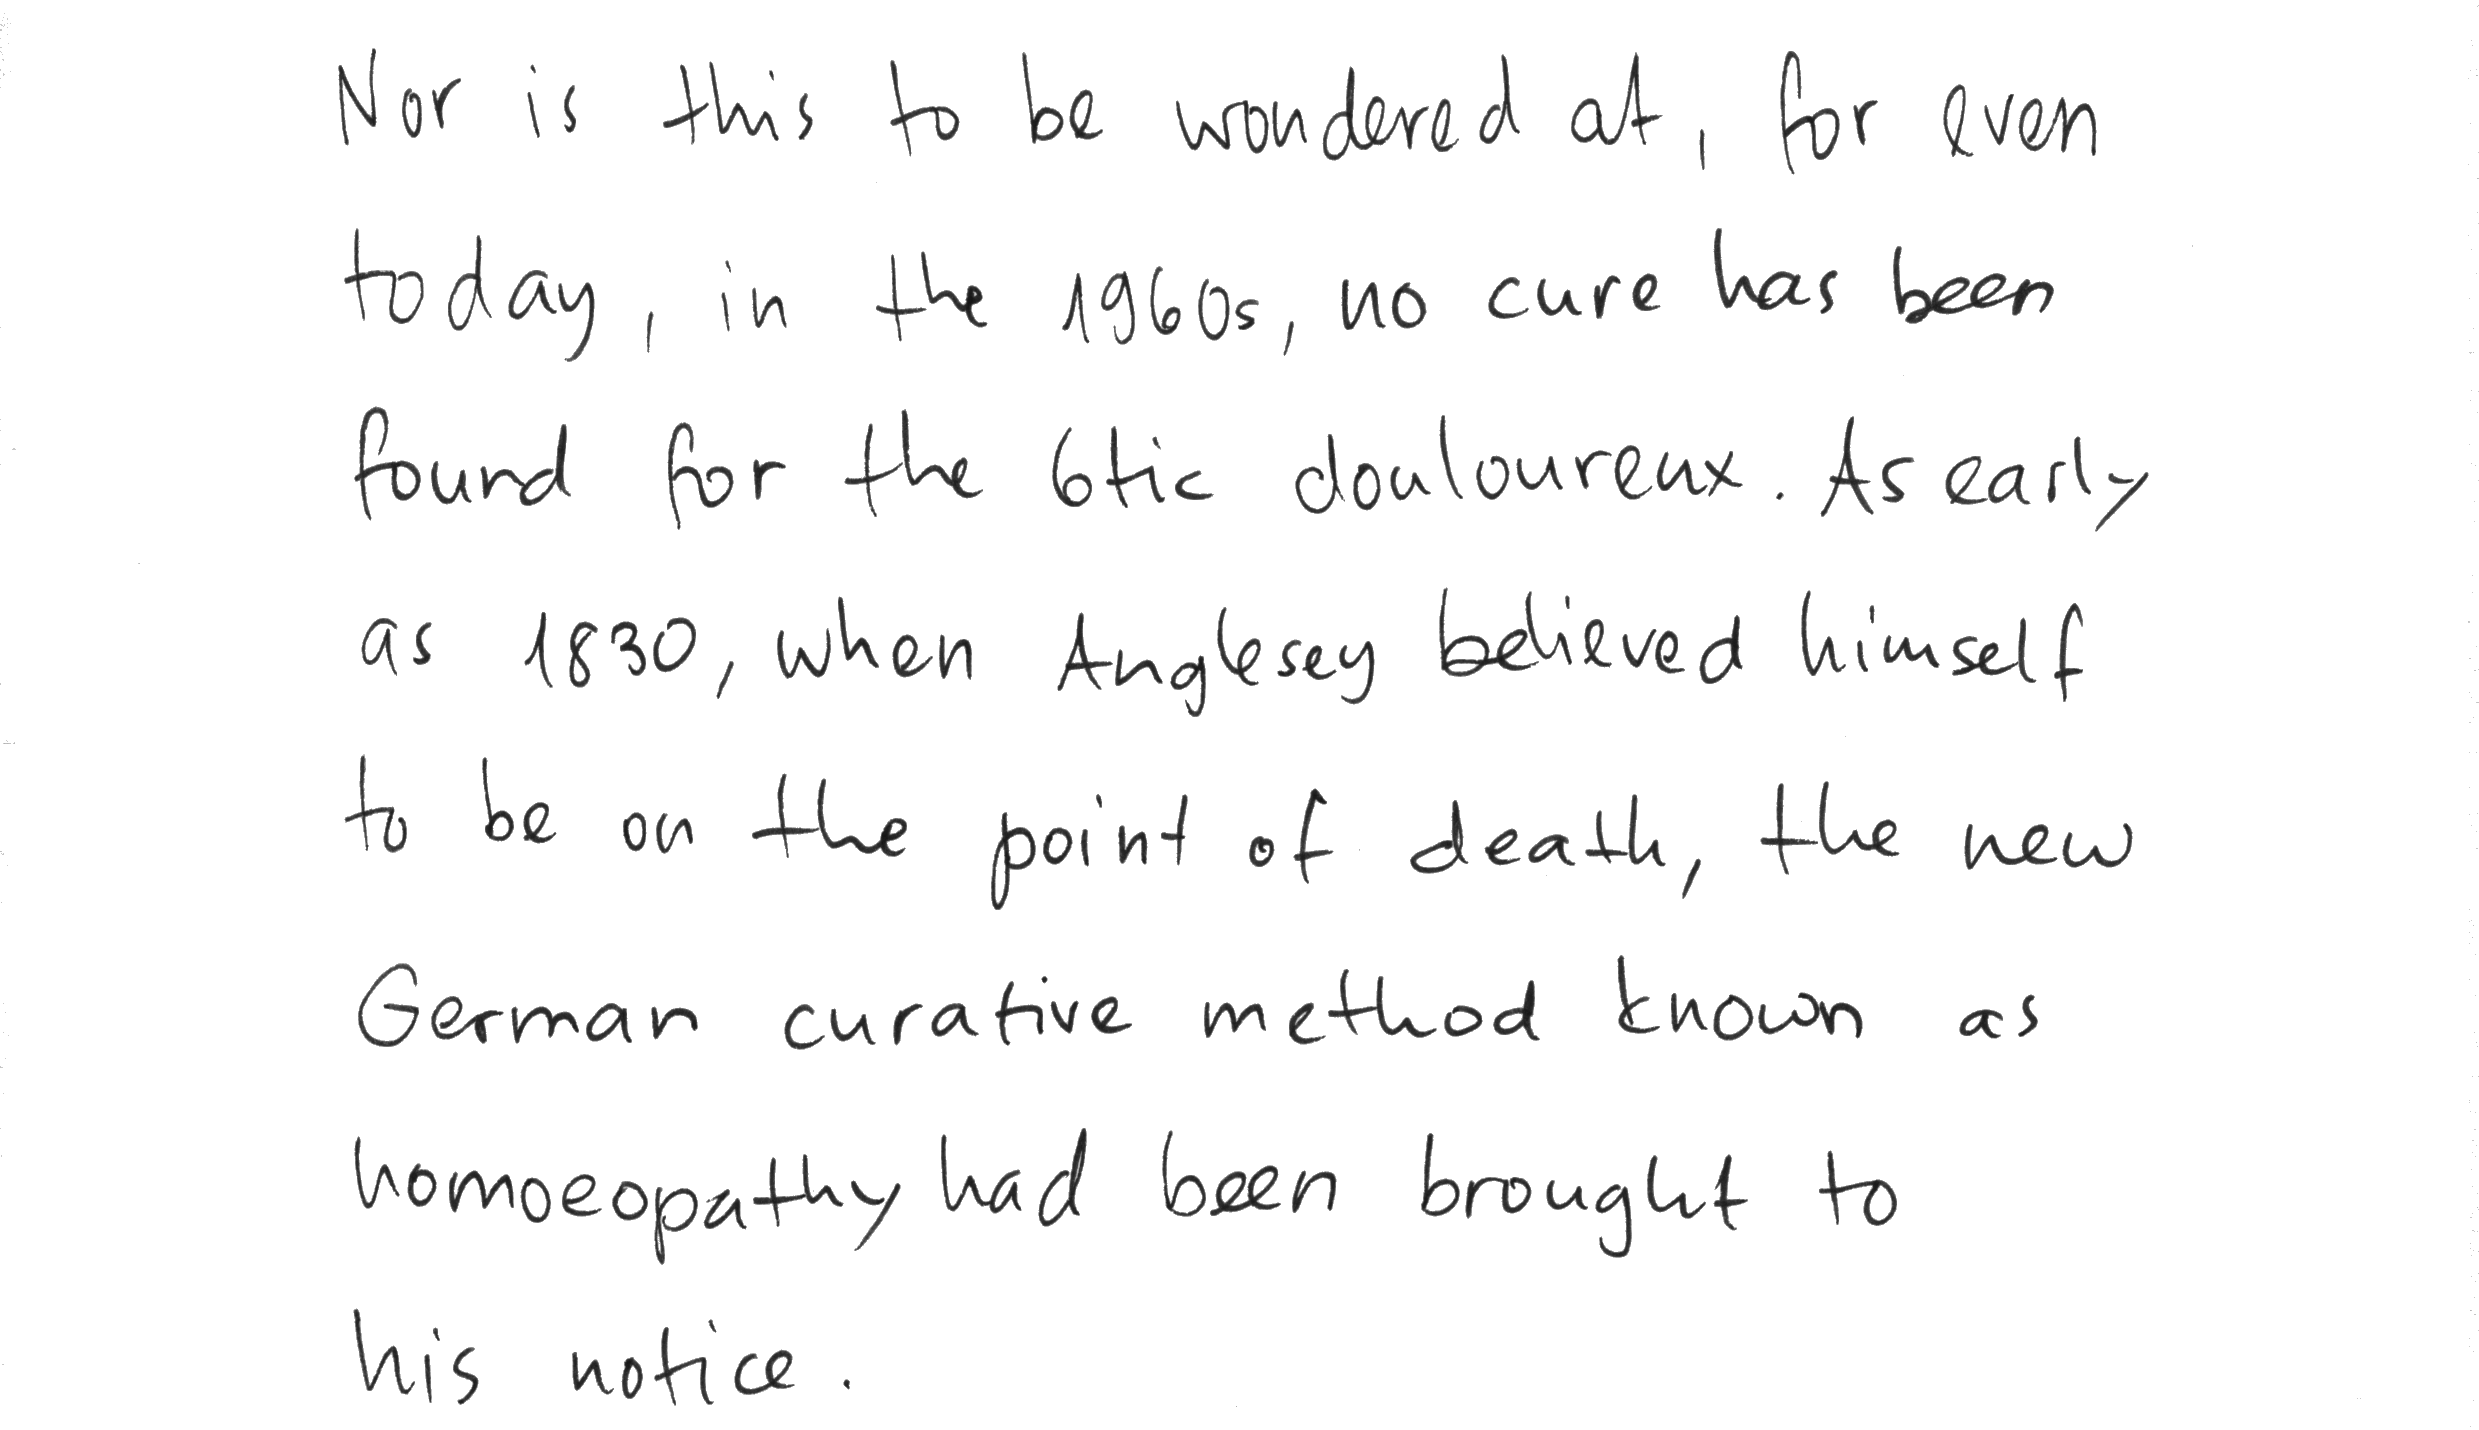 Nor is this to be wondered at, for even
today, in the 1960s, no cure has been
found for the 6tic douloureux. As early
as 1830, when Anglesey believed himself
to be on the point of death, the new
German curative method known as
homoeopathy had been brought to
his notice.